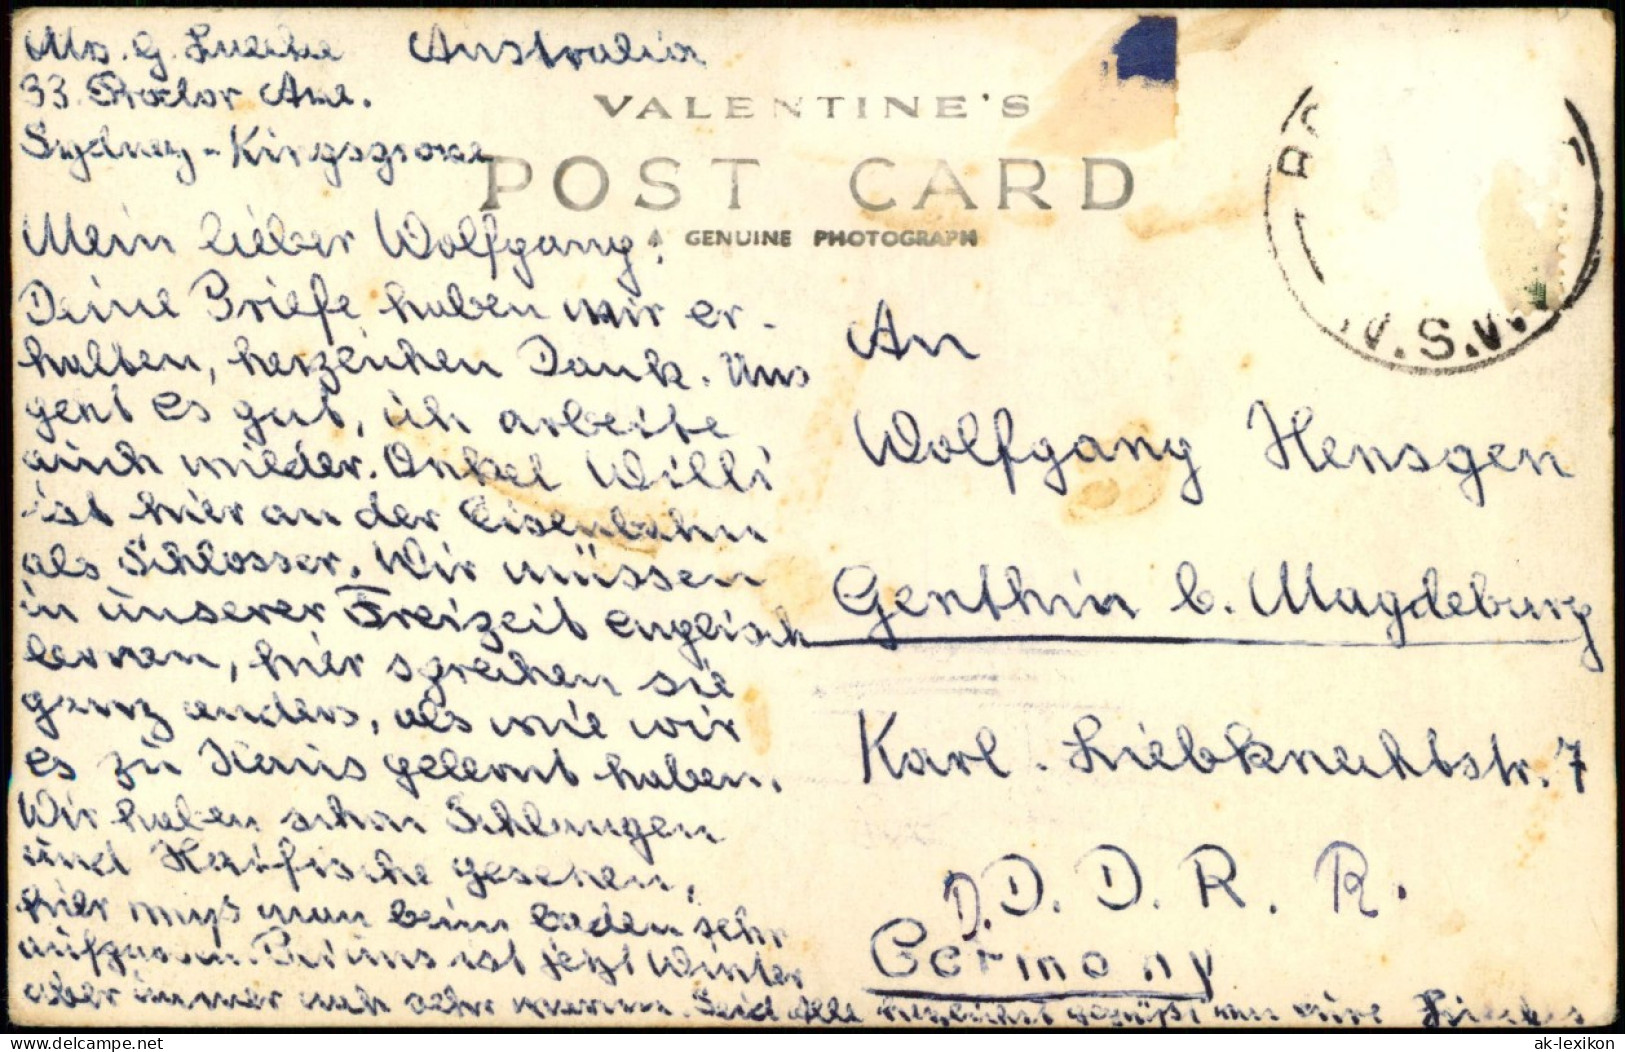 Mrs. G. Luecke Australia
33. Proctor Ave.
Sydney - Kingsgrove
VALENTINE'S
POST CARD
GENUINE PHOTOGRAPH
N.S.W.
Mein lieber Wolfgang!
Deine Briefe haben wir er-
halten, herzlichen Dank. Uns
geht es gut, ich arbeite
auch wieder. Onkel Willi
ist hier an der Eisenbahn
als Schlosser. Wir müssen
in unserer Freizeit englisch
lernen, hier sprechen sie
ganz anders, als wie wir
es zu Haus gelernt haben.
Wir haben schon Schlangen
und Haifische gesehen,
hier muß man beim baden sehr
aufpassen. Bei uns ist jetzt Winter
aber immer noch sehr warm. Seid Alle herzlichst gegrüßt von
An
Wolfgang Hensgen
Genthin b. Magdeburg
Karl. Liebknechtstr. 7
D. D. D. R. R.
Germany
ansichtskarten-lexikon.net
ak-lexikon.com